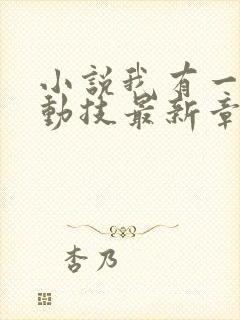 小說我有一
動技最新章
杏乃